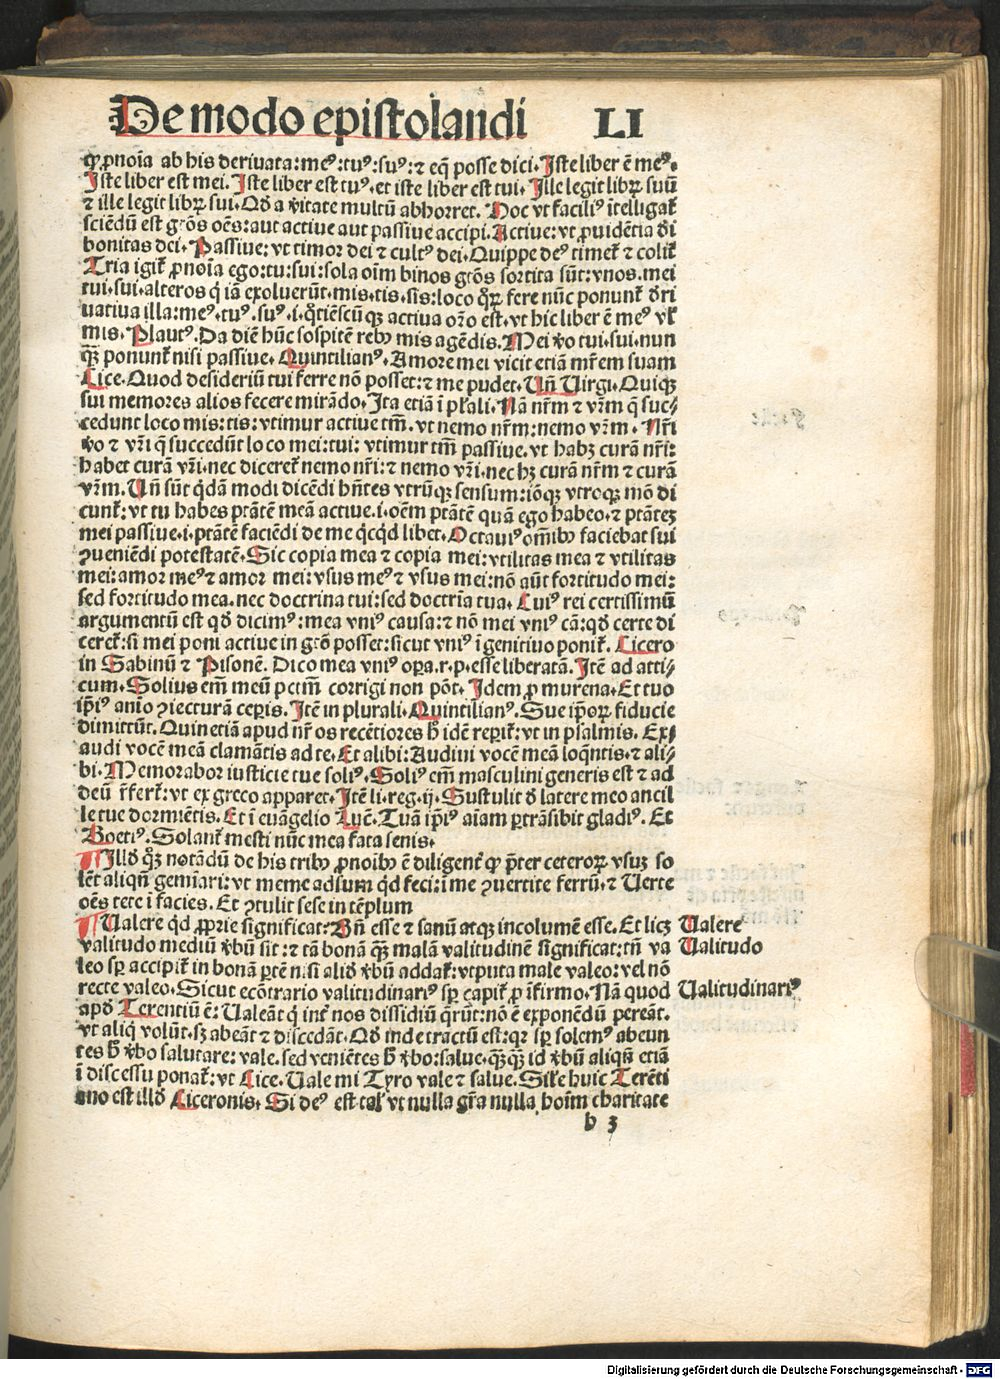 De modo epistolandi LI
ꝙ ꝓnoīa ab his deriuata: meꝰ: tuꝰ: suꝰ: ⁊ eq̄ posse dici. Iste liber ē meꝰ.
Iste liber est mei. Iste liber est tuꝰ. et iste liber est tui. Ille legit librꝝ suū
⁊ ille legit librꝝ sui. Qd̄ a v̄itate multū abhorret. Hoc vt faciliꝰ ītelligat̄
sciēdū est gn̄os oēs: aut actiue aut passiue accipi. Actiue: vt ꝓuidētia d̄i
bonitas dei. Passiue: vt timor dei ⁊ cultꝰ dei. Quippe deꝰ timet̄ ⁊ colit̄
Tria igit̄ ꝓnoīa ego: tu: sui: sola oīm binos gn̄os sortita sūt: vnos. mei
tui. sui. alteros q̄ iā exoluerūt. mis. tis. sis: loco qꝝ fere nūc ponunt̄ d̄ri
uatiua illa: meꝰ. tuꝰ. suꝰ. i. q̄tiēscūqꝫ actiua oꝛo est. vt hic liber ē meꝰ vl̄
mis. Plautꝰ. Da diē hūc sospitē rebꝰ mis agēdis. Mei v̄o tui. sui. nun
qꝫ ponunt̄ nisi passiue. Quintilianꝰ. Amore mei vicit etiā mr̄em suam
Cice. Quod desideriū tui ferre nō posset: ⁊ me pudet. Vn̄ Virgi. Quiqꝫ
sui memores alios fecere mirādo. Ita etiā ī pl̄ali. Nā nr̄m ⁊ vr̄m q̄ suc⸗
cedunt loco mis: tis: vtimur actiue tm̄. vt nemo nr̄m: nemo vr̄m. Nr̄i
v̄o ⁊ vr̄i q̄ succedūt loco mei: tui: vtimur tm̄ passiue. vt habꝫ curā nr̄i:
habet curā vr̄i. nec diceret̄ nemo nr̄i: ⁊ nemo vr̄i. nec hꝫ curā nr̄m ⁊ curā
vr̄m. Vn̄ sūt q̄dā modi dicēdi hn̄tes vtrūqꝫ sensum: iōqꝫ vtroqꝫ mō di
cunt̄: vt tu habes ptātē meā actiue. i. oēm ptātē quā ego habeo. ⁊ ptātēꝫ
mei passiue. i. ptātē faciēdi de me q̄cqd̄ libet. Octauiꝰ omībꝰ faciebat sui
ꝯueniēdi potestatē. Sic copia mea ⁊ copia mei: vtilitas mea ⁊ vtilitas
mei: amor meꝰ ⁊ amor mei: vsus meꝰ ⁊ vsus mei: nō aūt fortitudo mei:
sed fortitudo mea. nec doctrina tui: sed doctrīa tua. Cuiꝰ rei certissimū
argumentū est qd̄ dicimꝰ: mea vniꝰ causa: ⁊ nō mei vniꝰ cā: qd̄ certe di
ceret̄: si mei poni actiue in gn̄o posset: sicut vniꝰ ī genitiuo ponit̄. Cicero
in Sabinū ⁊ Pisonē. Dico mea vniꝰ oꝑa. r. p. esse liberatā. Itē ad atti⸗
cum. Solius em̄ meū pctm̄ corrigi non pōt. Idem ꝓ murena. Et tuo
ip̄iꝰ anīo ꝯiecturā ceꝑis. Itē in plurali. Quintilianꝰ. Sue ip̄oꝝ fiducie
dimittūt. Quin etiā apud nr̄os recētiores h̄ idē reꝑit̄: vt in psalmis. Ex⸗
audi vocē meā clamātis ad te. Et alibi: Audiui vocē meā loq̄ntis. ⁊ ali⸗
bi. Memorabor iusticie tue soliꝰ. Soliꝰ em̄ masculini generis est ⁊ ad
deū r̄fert̄: vt ex greco apparet. Itē li. reg. ij. Sustulit d̄ latere meo ancil
le tue dormiētis. Et ī euāgelio Luc̄. Tuā ip̄iꝰ aīam ꝑtrāsibit gladiꝰ. Et
Boetiꝰ. Solant̄ mesti nūc mea fata senis.
¶ Illd̄ qꝫ notādū de his tribꝰ ꝓnoībꝰ ē diligent̄ ꝙ p̄ter ceteroꝝ vsuꝫ so
lēt aliqn̄ gemīari: vt meme adsum qd̄ feci: ī me ꝯuertite ferrū. ⁊ Verte
oēs tete ī facies. Et ꝯtulit sese in tēplum
¶ Valere qd̄ ꝓprie significat: Bn̄ esse ⁊ sanū atqꝫ incolumē esse. Et licꝫ Valere
valitudo mediū v̄bū sit: ⁊ tā bonā qꝫ malā valitudinē significat: tn̄ va Valitudo
leo sꝑ accipit̄ in bonā ꝑtē nisi alid̄ v̄bū addat̄: vtputa male valeo: vel nō
recte valeo. Sicut ecōtrario valitudinariꝰ sꝑ capit̄ ꝓ īfirmo. Nā quod Valitudinariꝰ
apd̄ Terentiū ē: Valeāt q̄ int̄ nos dissidiū q̄rūt: nō ē exponēdū pereāt.
vt aliq̄ volūt. sꝫ abeāt ⁊ discedāt. Qd̄ inde tractū est: qꝛ sꝑ solemꝰ abeun
tes h̄ v̄bo salutare: vale. sed veniētes h̄ v̄bo: salue. qꝫqꝫ id v̄bū aliqn̄ etiā
ī discessu ponat̄: vt Cice. Vale mi Tyro vale ⁊ salue. Sil̄e huic Terēti
ano est illd̄ Ciceronis. Si deꝰ est tal̄ vt nulla gr̄a nulla hoīm charitate
b 3
Digitalisierung gefördert durch die Deutsche Forschungsgemeinschaft - DFG